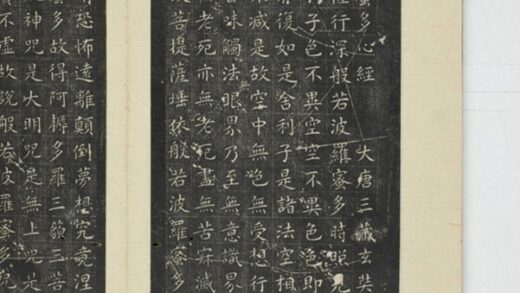 蜜多心經 大唐三藏玄奘
行深般若波羅蜜多時照見
子色不異空空不異色色即
復如是舍利子是諸法空相
減是故空中無色無受想行
香味觸法眼界乃至無意識界
老死亦無老死盡無苦寂滅
故菩提薩埵依般若波羅蜜多
有恐怖遠離顛倒夢想究竟涅
蜜多故得阿耨多羅三藐三菩
是神咒是大明咒是無上咒是
不虛故說般若波羅蜜多咒